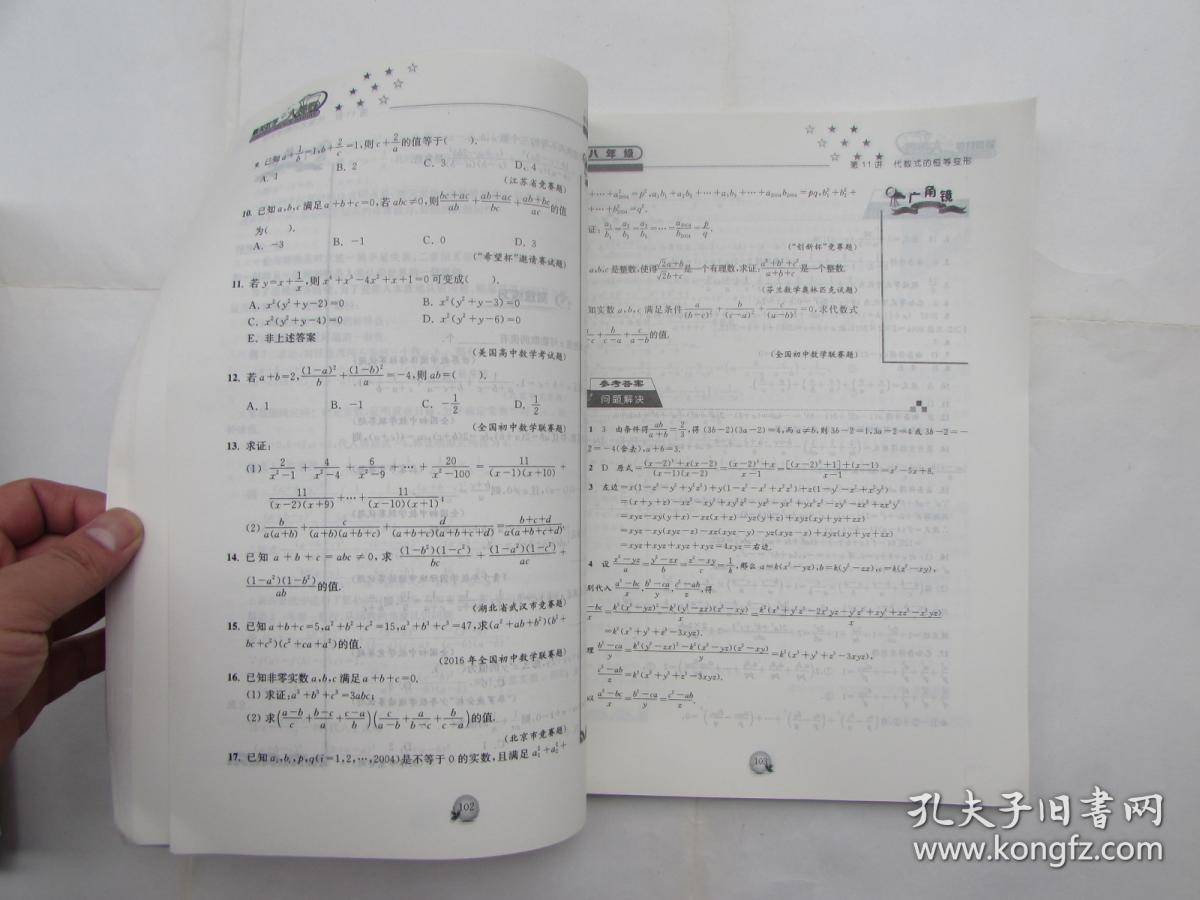 9. 已知a+1/b=1,b+2/c=1,则c+2/a的值等于( ).
A. 1 B. 2 C. 3 D. 4
(江苏省竞赛题)
10. 已知a,b,c满足a+b+c=0,若abc≠0,则(bc+ac)/ab+(ab+ac)/bc+(ab+bc)/ac的值
为( ).
A. -3 B. -1 C. 0 D. 3
("希望杯"邀请赛试题)
11. 若y=x+1/x,则x⁴+x³-4x²+x+1=0可变成( ).
A. x²(y²+y-2)=0 B. x²(y²+y-3)=0
C. x²(y²+y-4)=0 D. x²(y²+y-6)=0
E. 非上述答案
(美国高中数学考试题)
12. 若a+b=2,(1-a)²/b+(1-b)²/a=-4,则ab=( ).
A. 1 B. -1 C. -1/2 D. 1/2
(全国初中数学联赛题)
13. 求证:
(1) 2/(x²-1)+4/(x²-4)+6/(x²-9)+…+20/(x²-100)=11/((x-1)(x+10))+
11/((x-2)(x+9))+…+11/((x-10)(x+1));
(2) b/(a(a+b))+c/((a+b)(a+b+c))+d/((a+b+c)(a+b+c+d))=(b+c+d)/(a(a+b+c+d)).
14. 已知a+b+c=abc≠0,求(1-b²)(1-c²)/bc+(1-a²)(1-c²)/ac+
(1-a²)(1-b²)/ab的值.
(湖北省武汉市竞赛题)
15. 已知a+b+c=5,a²+b²+c²=15,a³+b³+c³=47,求(a²+ab+b²)(b²+
bc+c²)(c²+ca+a²)的值.
(2016年全国初中数学联赛题)
16. 已知非零实数a,b,c满足a+b+c=0.
(1) 求证:a³+b³+c³=3abc;
(2) 求((a-b)/c+(b-c)/a+(c-a)/b)(c/(a-b)+a/(b-c)+b/(c-a))的值.
(北京市竞赛题)
17. 已知aᵢ,bᵢ,p,q(i=1,2,…,2004)是不等于0的实数,且满足a₁²+a₂²+
102
八年级
第11讲 代数式的恒等变形
广角镜
+…+a²₂₀₀₄=p²,a₁b₁+a₂b₂+…+a₂₀₀₄b₂₀₀₄=pq,b₁²+b₂²+
+…+b²₂₀₀₄=q².
证:a₁/b₁=a₂/b₂=a₃/b₃=…=a₂₀₀₄/b₂₀₀₄=p/q.
("创新杯"竞赛题)
a,b,c是整数,使得(√2a+b)/(√2b+c)是一个有理数,求证:(a²+b²+c²)/(a+b+c)是一个整数.
(芬兰数学奥林匹克试题)
知实数a,b,c满足条件a/(b-c)²+b/(c-a)²+c/(a-b)²=0,求代数式
+b/(c-a)+c/(a-b)的值.
(全国初中数学联赛题)
参考答案
问题解决
1 3 由条件得ab/(a+b)=2/3,得(3b-2)(3a-2)=4,而a≠b,则3b-2=1,3a-2=4或3b-2=-
2=-4(舍去),a+b=3.
2 D 原式=((x-2)³+x(x-2))/((x-1)(x-2))=((x-2)²+x)/(x-1)=([(x-2)³+1]+(x-1))/(x-1)=x²-5x+8.
3 左边=x(1-z²-y²+y²z²)+y(1-z²-x²+x²z²)+z(1-y²-x²+x²y²)
=(x+y+z)-xz²-xy²+xy²z²-yz²-yx²+yx²z²-zy²-zx²+zx²y²
=xyz-xy(y+x)-xz(x+z)-yz(y+z)+xyz(xy+yz+zx)
=xyz-xy(xyz-z)-xz(xyz-y)-yz(xyz-x)+xyz(xy+yz+zx)
=xyz+xyz+xyz+xyz=4xyz=右边.
4 设(x²-yz)/a=(y²-zx)/b=(z²-xy)/c=1/k,那么a=k(x²-yz),b=k(y²-zx),c=k(z²-xy),
别代入(a²-bc)/x,(b²-ca)/y,(c²-ab)/z,得
-bc/x=(k²(x²-yz)²-k²(y²-zx)(z²-xy))/x=k²(x⁴+y²z²-2x²yz-y²z²+xy³+xz³-x²yz)/x
=k²(x³+y³+z³-3xyz).
理(b²-ca)/y=(k²(y²-zx)²-k²(x²-yz)(z²-xy))/y=k²(x³+y³+z³-3xyz),
(c²-ab)/z=k²(x³+y³+z³-3xyz).
以(a²-bc)/x=(b²-ca)/y=(c²-ab)/z.
103
孔夫子旧书网
www.kongfz.com